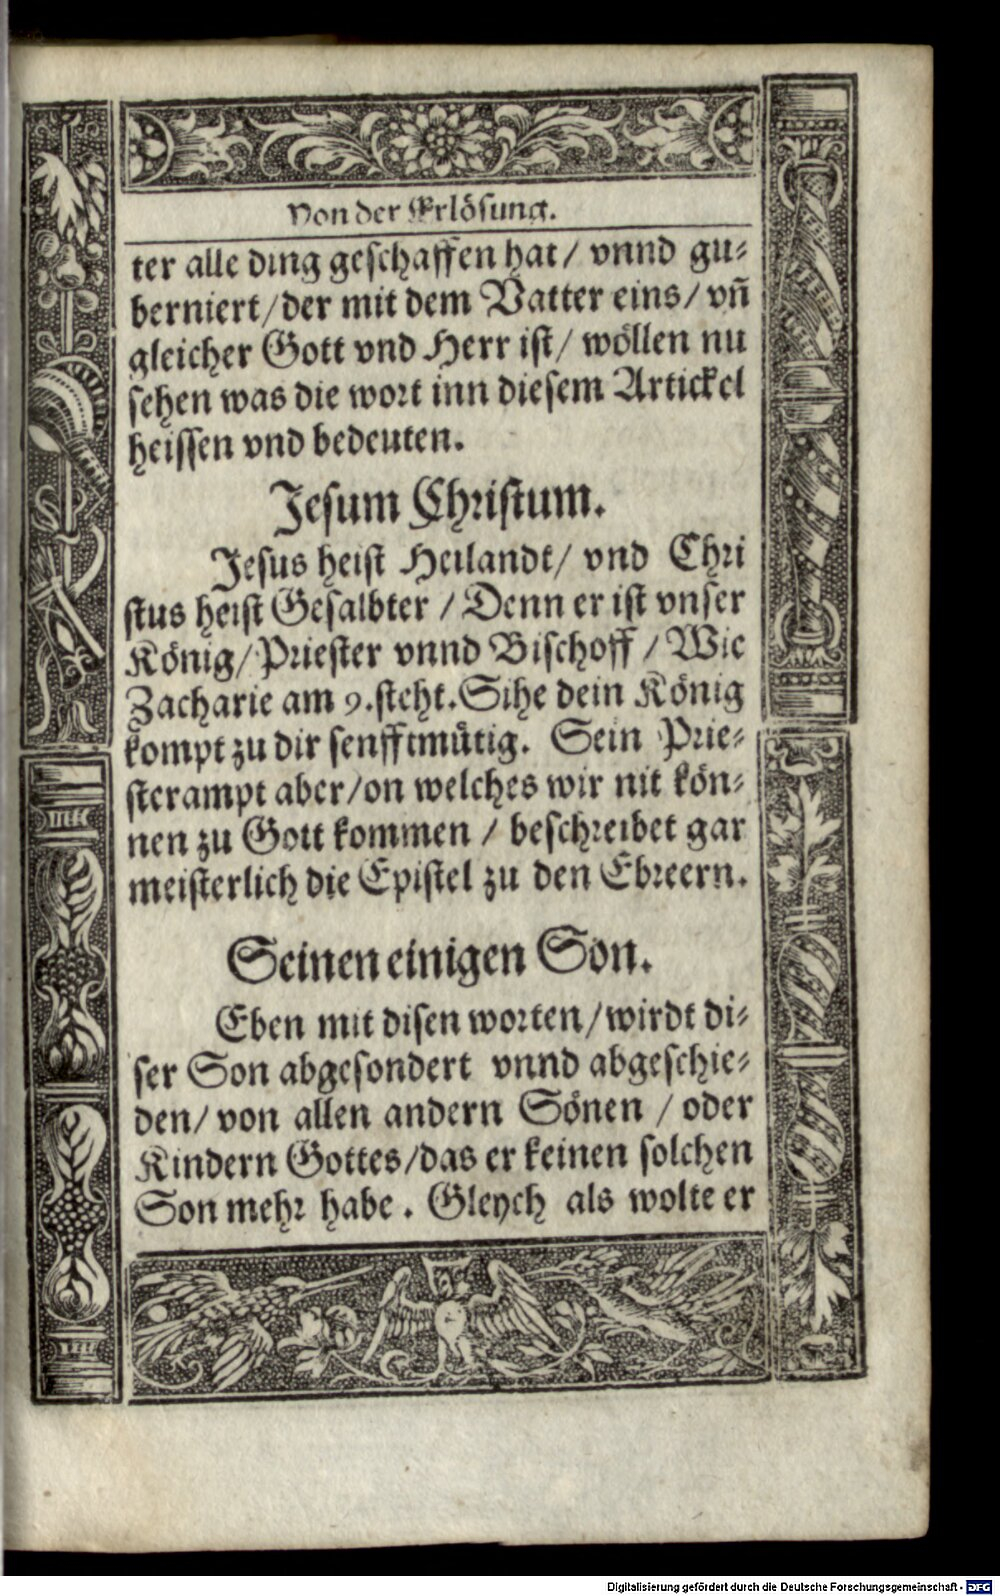 Von der Erlösung.
ter alle ding geschaffen hat / vnnd gu⸗
berniert / der mit dem Vatter eins / vñ
gleicher Gott vnd Herr ist / wöllen nu
sehen was die wort inn diesem Artickel
heissen vnd bedeuten.
Jesum Christum.
Jesus heist Heilandt / vnd Chri
stus heist Gesalbter / Denn er ist vnser
König / Priester vnnd Bischoff / Wie
Zacharie am 9. steht. Sihe dein König
kompt zu dir senfftmütig. Sein Prie⸗
sterampt aber / on welches wir nit kön⸗
nen zu Gott kommen / beschreibet gar
meisterlich die Epistel zu den Ebreern.
Seinen einigen Son.
Eben mit disen worten / wirdt di⸗
ser Son abgesondert vnnd abgeschie⸗
den / von allen andern Sönen / oder
Kindern Gottes / das er keinen solchen
Son mehr habe. Gleych als wolte er
Digitalisierung gefördert durch die Deutsche Forschungsgemeinschaft - DFG